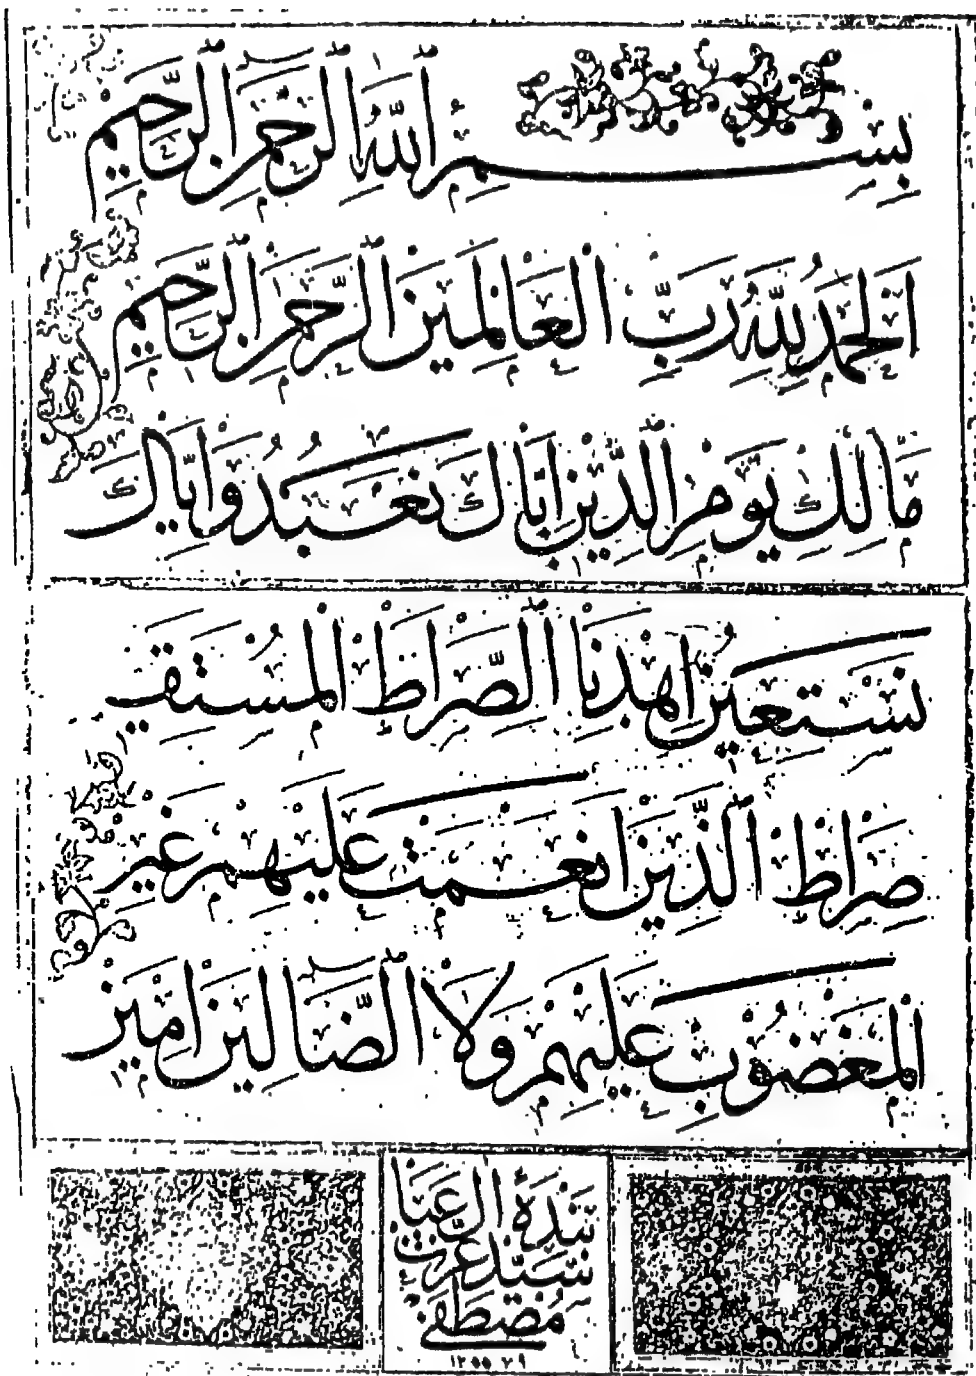 بسم الله الرحمن الرحيم
الحمد لله رب العالمين الرحمن الرحيم
مالك يوم الدين اياك نعبد واياك
نستعين اهدنا الصراط المستقيم
صراط الذين انعمت عليهم غير
المغضوب عليهم ولا الضالين امين
بندهٔ آل عبا
سيد عزت
مصطفى